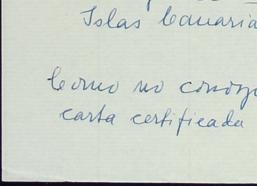 Islas Canaria
Como no conozc
carta certificada